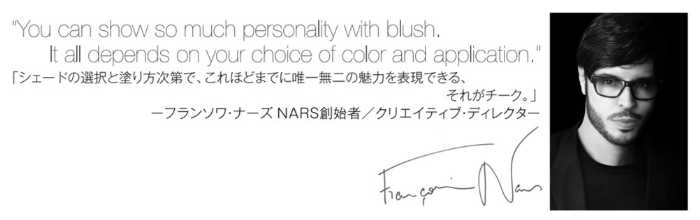 "You can show so much personality with blush.
It all depends on your choice of color and application."
「シェードの選択と塗り方次第で、これほどまでに唯一無二の魅力を表現できる、
それがチーク。」
ーフランソワ・ナーズ NARS創始者／クリエイティブ・ディレクター
François Nars